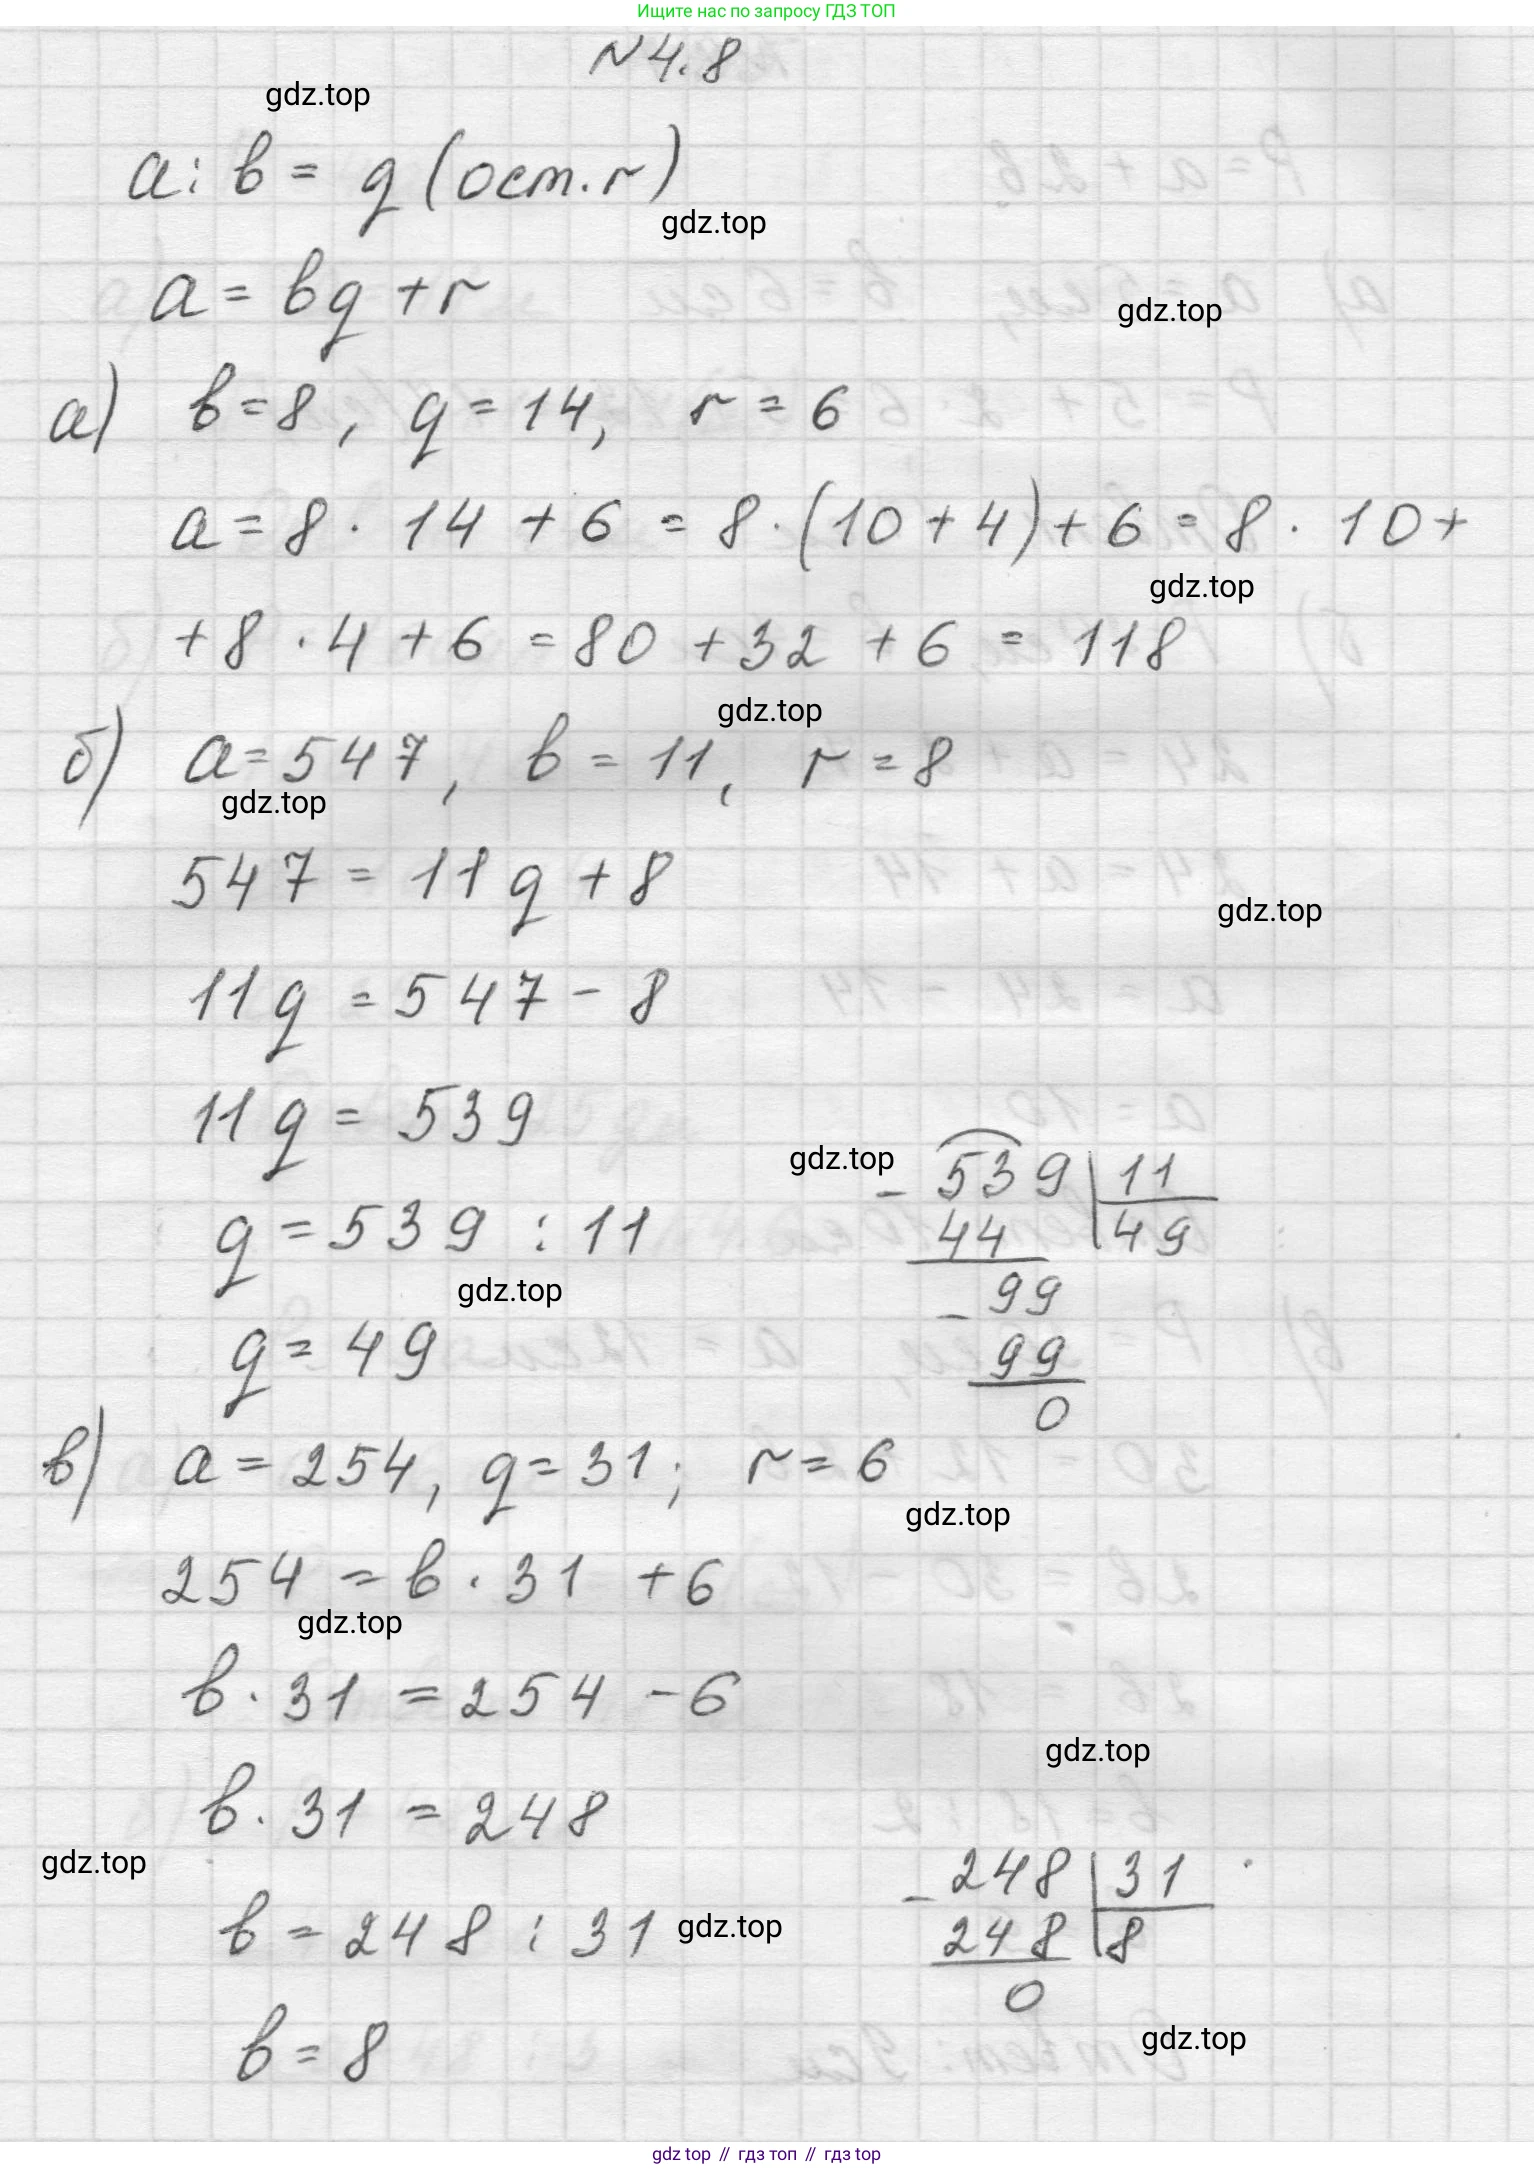 Ищите нас по запросу ГДЗ ТОП
N 4.8
gdz.top
a : в = q (ост. r)
gdz.top
a = вq + r
gdz.top
а) в = 8, q = 14, r = 6
a = 8 · 14 + 6 = 8 · (10 + 4) + 6 = 8 · 10 +
gdz.top
+ 8 · 4 + 6 = 80 + 32 + 6 = 118
gdz.top
б) a = 547, в = 11, r = 8
gdz.top
547 = 11q + 8
gdz.top
11q = 547 - 8
11q = 539
gdz.top
- 539 | 11
q = 539 : 11
44 | 49
gdz.top
- 99
q = 49
99
0
в) a = 254, q = 31; r = 6
gdz.top
254 = в · 31 + 6
gdz.top
в · 31 = 254 - 6
gdz.top
в · 31 = 248
gdz.top
- 248 | 31
в = 248 : 31
gdz.top
248 | 8
0
gdz.top
в = 8
gdz top // гдз топ // гдз top